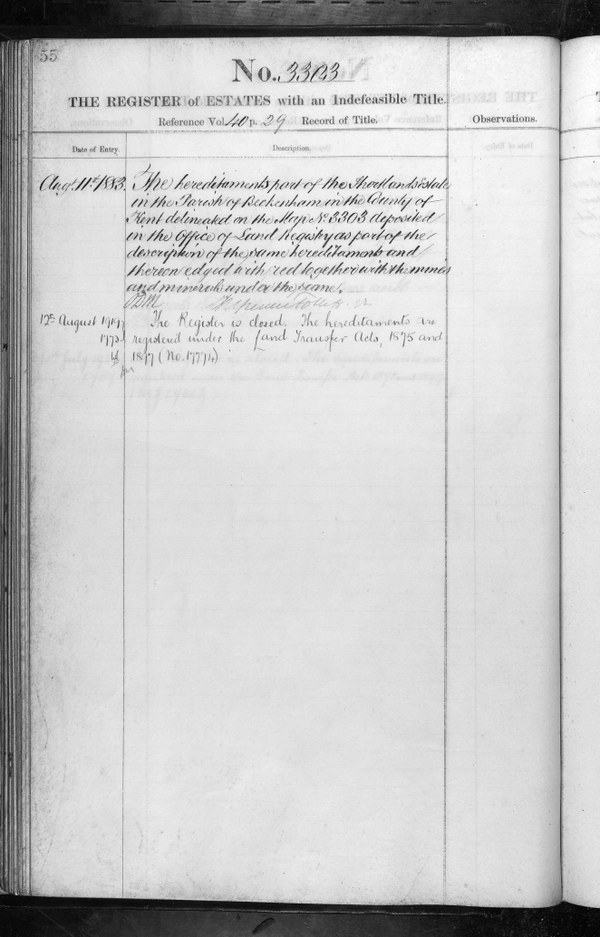 55
No. 3303
THE REGISTER of ESTATES with an Indefeasible Title.
Reference Vol. 40 p. 29 Record of Title.
Observations.
Date of Entry.
Description.
Augt. 11th 1883.
The hereditaments part of the Shortlands Estate
in the Parish of Beckenham in the County of
Kent delineated on the Map No. 3303 deposited
in the Office of Land Registry as part of the
description of the same hereditaments and
thereon edged with red together with the mines
and minerals under the same.
12th August 1909
The Register is closed. The hereditaments are
registered under the Land Transfer Acts, 1875 and
1897 (No. 17774)